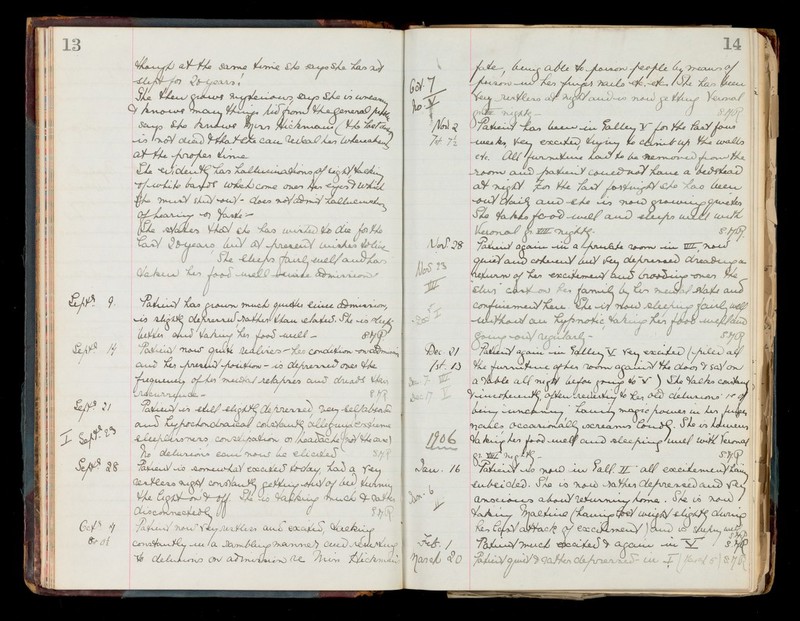 13
though at the same time she says she has not
slept for 20 years!
She then grows mysterious, says she is uncanny
& knows many things hid from the general public
says she knows Miss Hickman (the lost lady)
is not dead & that she can reveal her whereabouts
at the proper time
She evidently has hallucinations of sight talking
of white bands which come over her eyes & which
she must
of hearing or taste.
She states that she has wished to die for the
last 20 years, but at present wishes to live
She sleeps fairly well and has
taken her food well since admission
Septr 9. Patient has grown much quieter since admission,
is slightly depressed rather than elated. She is sleeping
better and taking her food well - S.M.R.
Septr 14 Patient now quite realises her condition on admission
and her present position - is depressed over the
frequency of her mental relapses and dreads their
recurrence - S.M.R.
Septr 21 Patient is still slightly depressed, very self absorbed
and hypochondriacal constantly
I Septr 23 sleeplessness, constipation or headache (not the are)
No delusions can now be elicited S.M.R.
Septr 28 Patient is somewhat excited today, had a very
restless night constantly getting out of bed turning
the light on & off. She is talking much & rather
disconnectedly S.M.R.
Octr 4 Patient now very restless and excited, talking
constantly in a rambling manner and reverting
to delusions on admission re Miss Hickman's
14
fate, being able to poison people by means of
poison in her finger nails etc. etc. She has been
Oct 7 very restless at night and is now getting Veronal
No V
nightly - S.M.R.
Nov 2 Patient has been in Galley V for the past four
7st 7½ weeks very excited, trying to climb up the walls
etc. All furniture had to be removed from the
room and patient could not have a bedstead
at night. For the last fortnight she has been
out daily and she is now growing quieter
She takes food well and sleeps well with
Veronal gr VIII nightly. S.M.R.
Nov 28 Patient again in a private room in III, now
quiet and coherent but very depressed dreading a
Nov 23 return of her excitement and brooding over the
III 'slur' cast on her family by her mental state and
confinement here. She is now sleeping fairly well
without an hypnotic, taking her food well and
going out regularly - S.M.R.
Dec 21 Patient again in Galley V very excited (piled all
7st. 13 the furniture of her room against the door & sat on
a table all night before going to V) She talks constantly
& incoherently, often reverting to her old delusions re
being uncanny, having magic powers in her finger
nails, occasionally screams loudly. She is however
1906 taking her food well and sleeping well with Veronal
gr VIII nightly - S.M.R.
Jan. 16 Patient is now in Gall. II all excitement having
subsided. She is now rather depressed and very
Jan. 6 anxious about returning home. She is now
taking Maltine (having lost weight slightly during
her last attack of excitement) and is
Feb. 1 Patient much excited & again in V S.M.R.
March 20 Patient quiet & rather depressed in I (March 5) S.M.R.